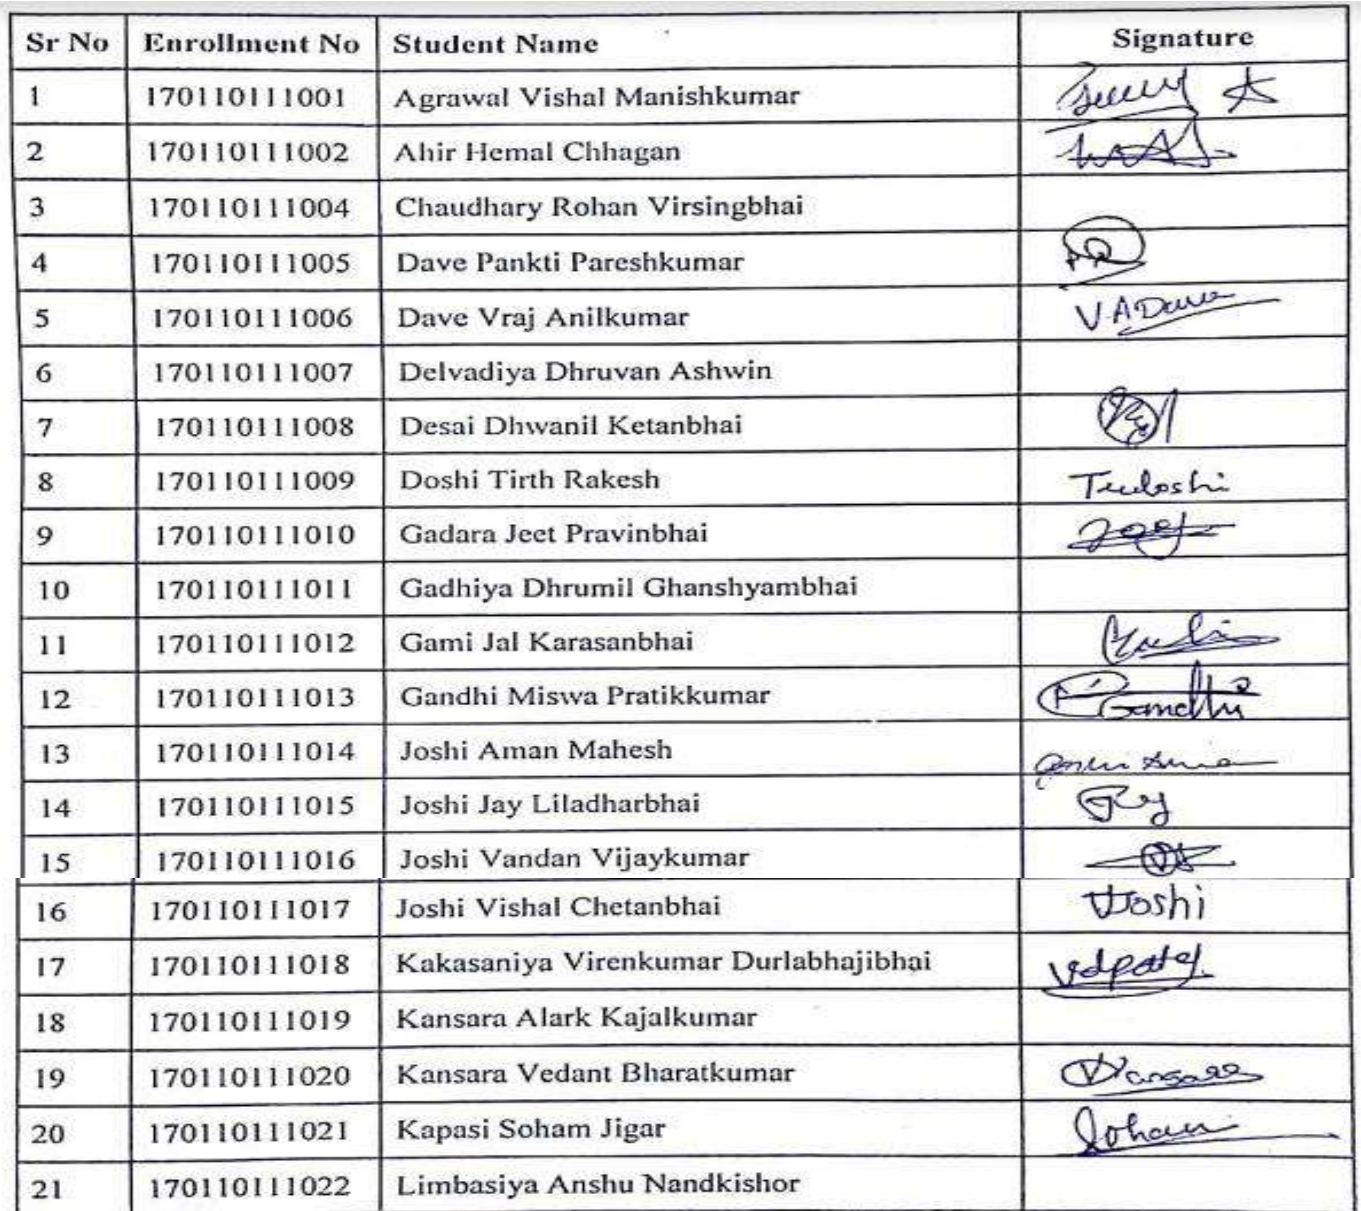 Sr No Enrollment No Student Name Signature
1 170110111001 Agrawal Vishal Manishkumar
2 170110111002 Ahir Hemal Chhagan
3 170110111004 Chaudhary Rohan Virsingbhai
4 170110111005 Dave Pankti Pareshkumar
5 170110111006 Dave Vraj Anilkumar V.A.Dave
6 170110111007 Delvadiya Dhruvan Ashwin
7 170110111008 Desai Dhwanil Ketanbhai
8 170110111009 Doshi Tirth Rakesh
9 170110111010 Gadara Jeet Pravinbhai
10 170110111011 Gadhiya Dhrumil Ghanshyambhai
11 170110111012 Gami Jal Karasanbhai
12 170110111013 Gandhi Miswa Pratikkumar Gandhi
13 170110111014 Joshi Aman Mahesh
14 170110111015 Joshi Jay Liladharbhai
15 170110111016 Joshi Vandan Vijaykumar
16 170110111017 Joshi Vishal Chetanbhai VJoshi
17 170110111018 Kakasaniya Virenkumar Durlabhajibhai vdpatel
18 170110111019 Kansara Alark Kajalkumar
19 170110111020 Kansara Vedant Bharatkumar
20 170110111021 Kapasi Soham Jigar Soham
21 170110111022 Limbasiya Anshu Nandkishor